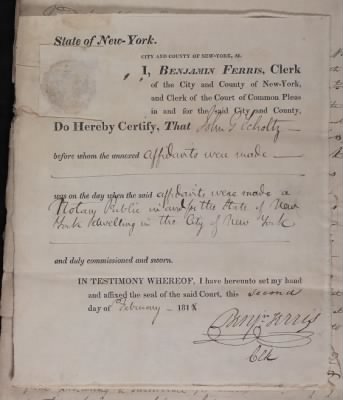 State of New-York.
CITY AND COUNTY OF NEW-YORK, ss.
I, BENJAMIN FERRIS, Clerk
of the City and County of New-York,
and Clerk of the Court of Common Pleas
in and for the said City and County,
Do Hereby Certify, That John G Scholtz
before whom the annexed Affidavits were made
was on the day when the said affidavits were made a
Notary Public in and for the State of New
York dwelling in the City of New York
and duly commissioned and sworn.
IN TESTIMONY WHEREOF, I have hereunto set my hand
and affixed the seal of the said Court, this second
day of February 181
Benjn Ferris
Clk